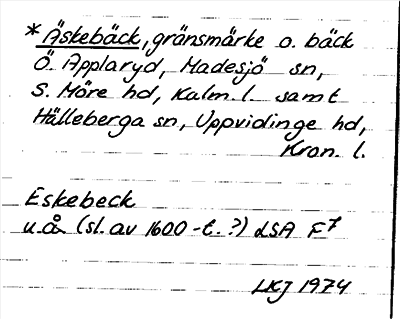 *Äskebäck, gränsmärke o. bäck
Ö Applaryd, Madesjö sn,
S. Möre hd, Kalm. l. samt
Hälleberga sn, Uppvidinge hd,
Kron. l.
Eskebeck
u.å. (sl. av 1600-t.?) LSA F7
LKJ 1974